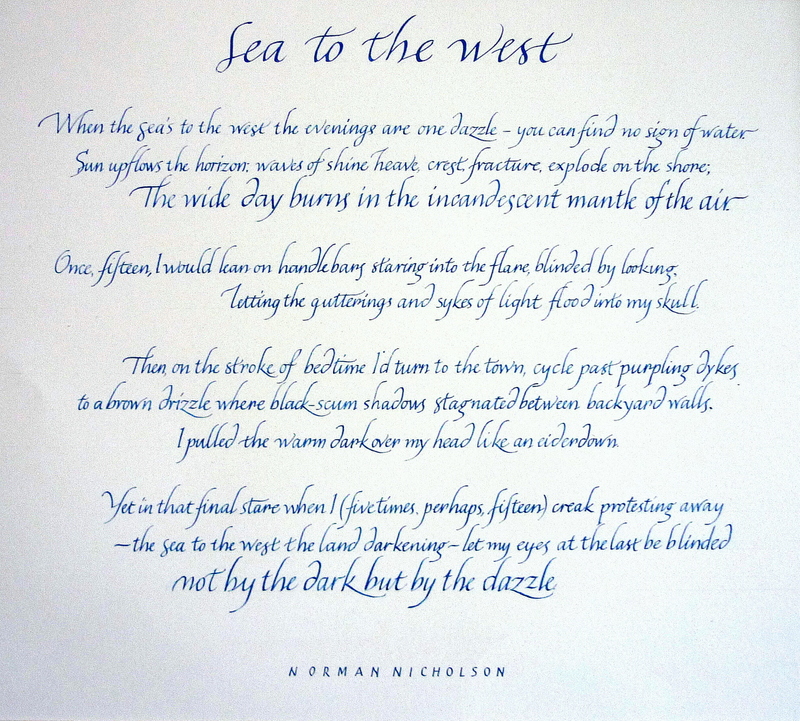 Sea to the west
When the sea's to the west the evenings are one dazzle – you can find no sign of water
Sun upflows the horizon: waves of shine heave, crest, fracture, explode on the shore;
The wide day burns in the incandescent mantle of the air
Once, fifteen, I would lean on handlebars staring into the flare, blinded by looking,
Letting the gutterings and sykes of light flood into my skull.
Then, on the stroke of bedtime I'd turn to the town, cycle past purpling dykes
to a brown drizzle where black-scum shadows stagnated between backyard walls.
I pulled the warm dark over my head like an eiderdown.
Yet in that final stare when I (five times, perhaps, fifteen) creak protesting away
– the sea to the west the land darkening – let my eyes at the last be blinded
not by the dark but by the dazzle.
NORMAN NICHOLSON